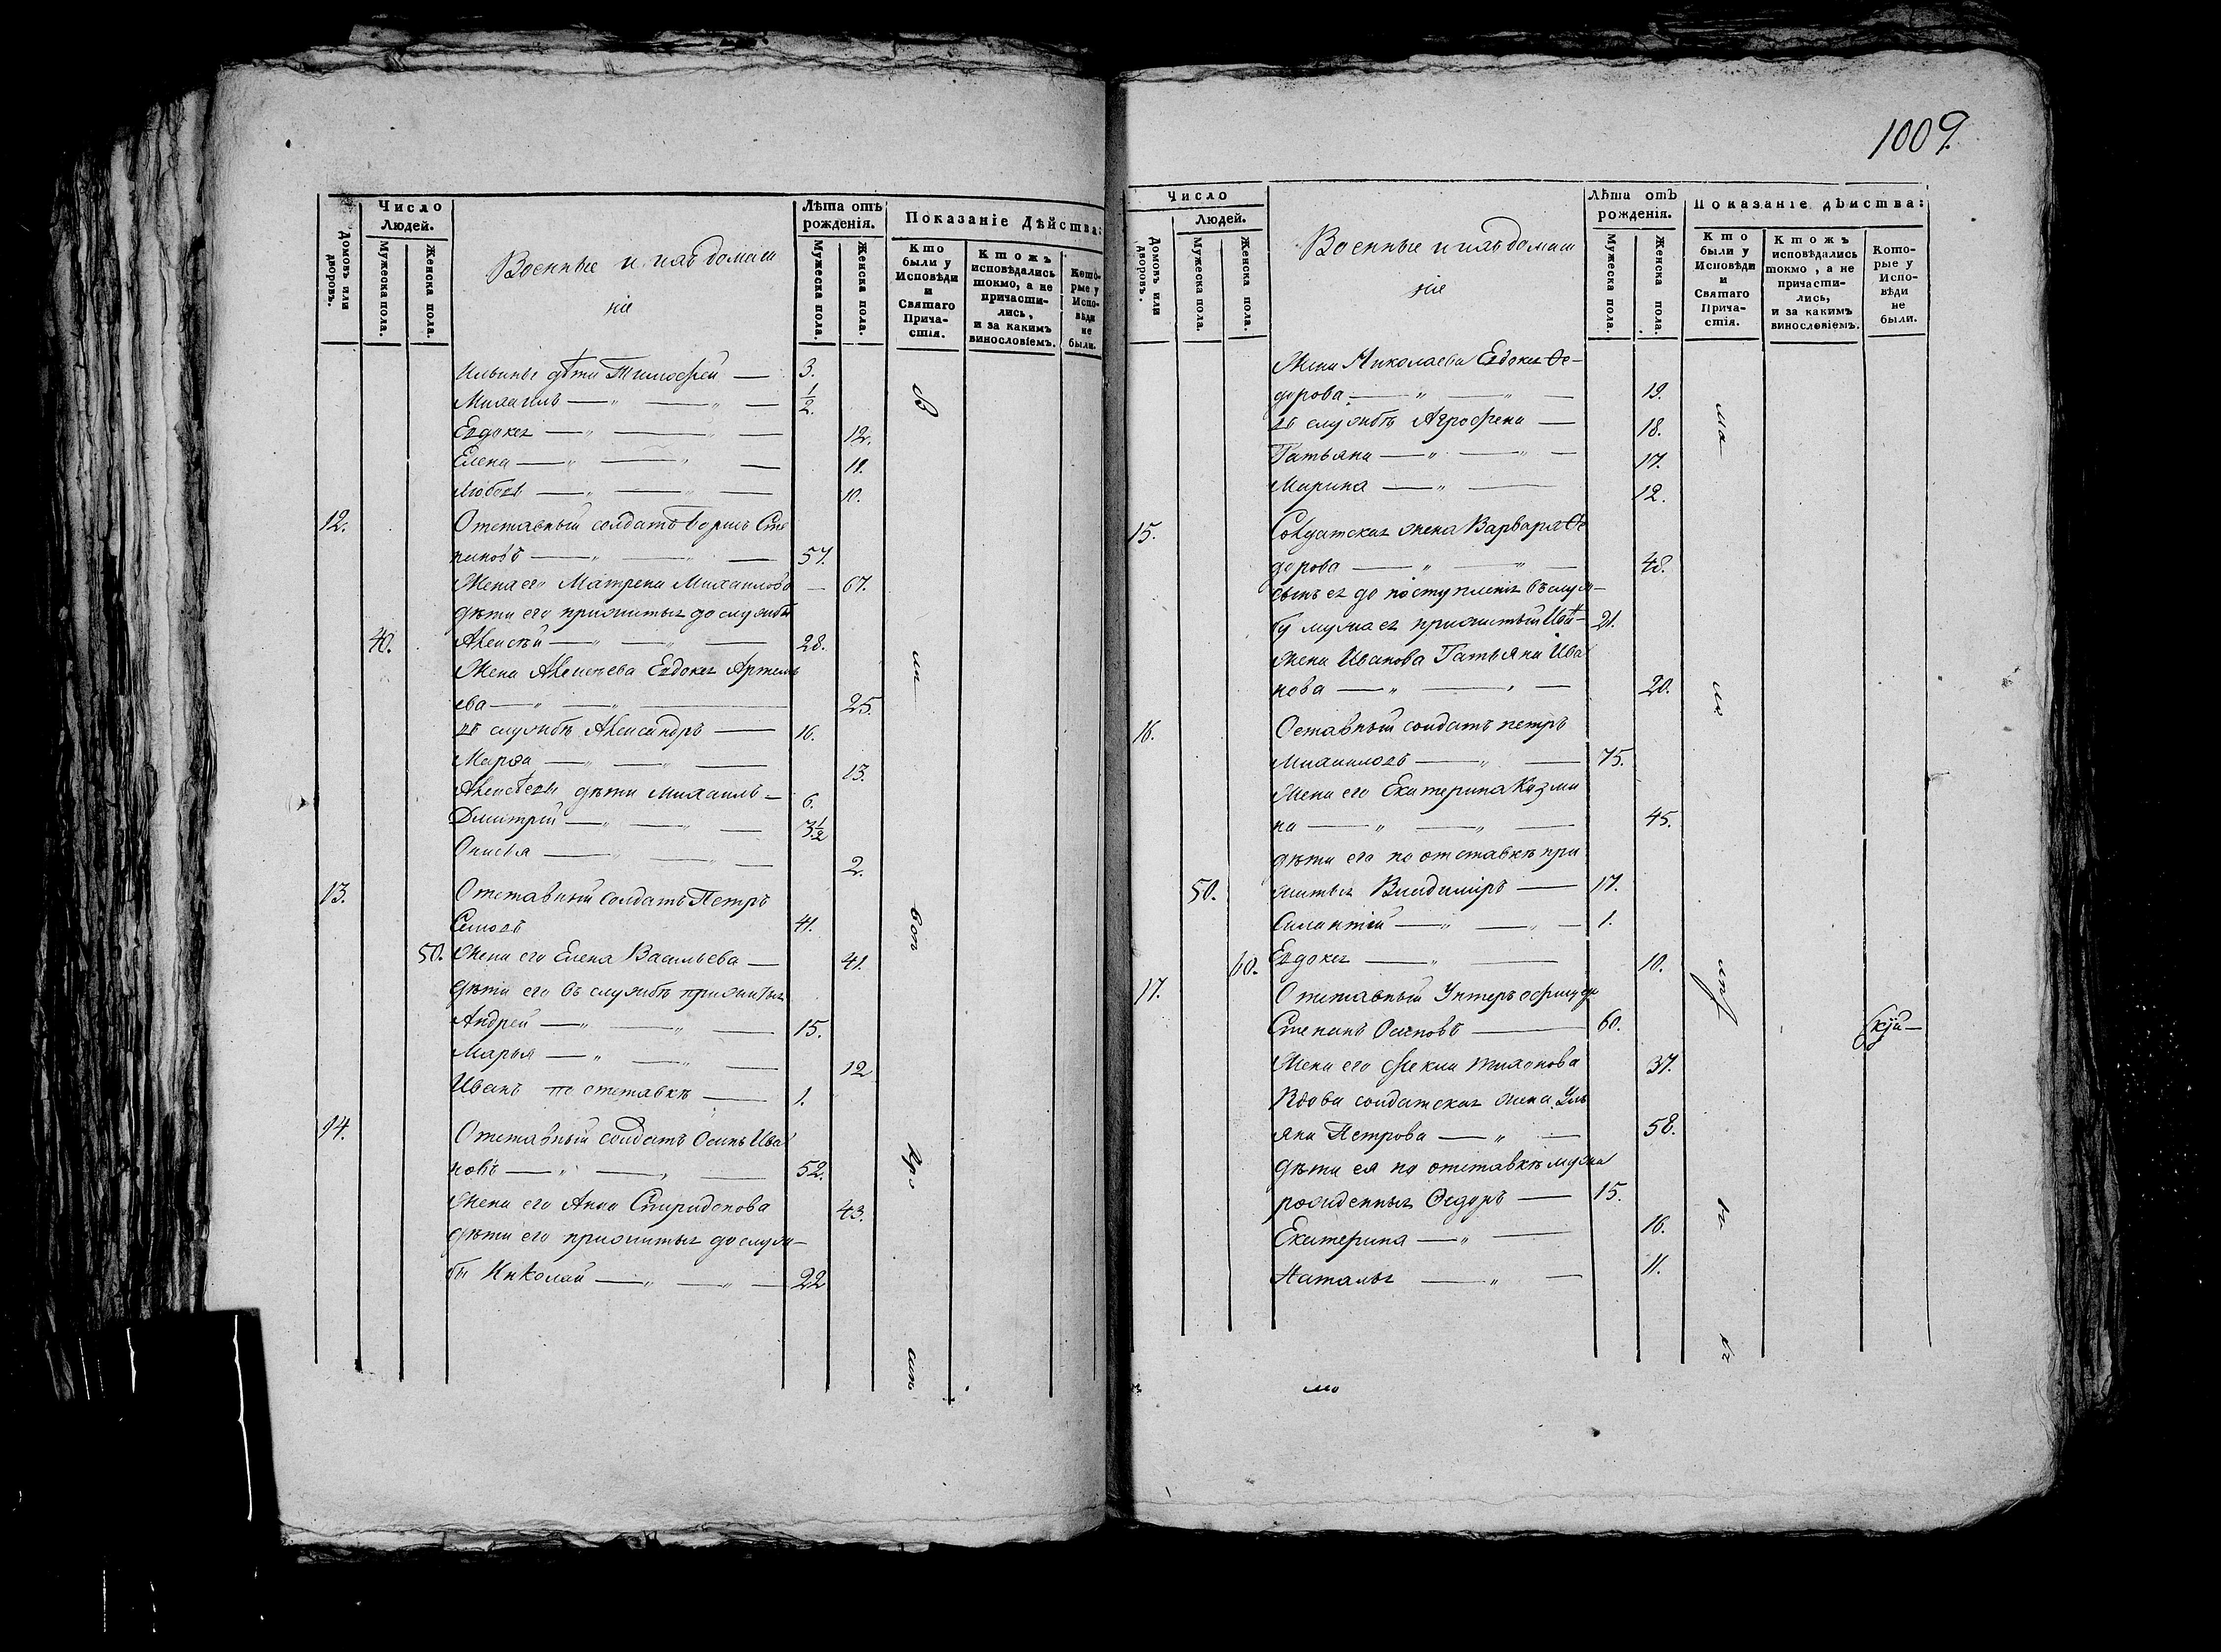 1009.
Число
Людей.
Домовъ или дворовъ.
Мужеска пола.
Женска пола.
Военные и ихъ домаш
ніе
Лѣта отъ
рожденія.
Мужеска пола.
Женска пола.
Показаніе Дѣйства:
Кто
были у
Исповѣди
и
Святаго
Прича-
стія.
Ктожъ
исповѣдались
токмо, а не
причасти-
лись,
и за какимъ
винословіемъ.
Кото-
рые у
Испо-
вѣди
не
были.
Ильины дѣти Тимофей — 3.
Михаилъ — „ — „ — 1/2.
Евдокея — „ — „ — 12.
Елена — „ — „ — 11.
Любовь — „ — „ — 10.
12. Отставный солдатъ Борисъ Сте
пановъ — „ — „ — 57.
Жена его Матрена Михаилова — 67.
дѣти его прижитыя до службы
40. Алексѣй — „ — „ — 28.
Жена Алексѣева Евдокея Артемь
ева — „ — „ — 25.
въ службѣ Александръ — 16.
Марѳа — „ — „ — 13.
Алексѣевы дѣти Михаилъ — 6.
Дмитрій — „ — „ — 3 1/2
Анисья — „ — „ — 2.
13. Отставный солдатъ Петръ
41.
50. Жена его Елена Васильева — 41.
дѣти его въ службѣ прижитыя
Андрей — „ — „ — 15.
Марья — „ — „ — 12
Иванъ по отставкѣ — 1.
14. Отставный солдатъ Осипъ Ива
новъ — „ — „ — 52.
Жена его Анна Спиридонова 43.
дѣти его прижитыя до служ-
бы Николай — „ — „ — 22
Число
Людей.
Домовъ или дворовъ.
Мужеска пола.
Женска пола.
Военные и ихъ домаш
ніе
Лѣта отъ
рожденія.
Мужеска пола.
Женска пола.
Показаніе дѣйства:
Кто
были у
Исповѣди
и
Святаго
Прича-
стія.
Ктожъ
исповѣдались
токмо, а не
причасти-
лись,
и за какимъ
винословіемъ.
Кото-
рые у
Испо-
вѣди
не
были.
Жена Николаева Евдокея Ѳе-
дорова — „ — „ — 19.
въ службѣ Агрофена — 18.
Татьяна — „ — „ — 17.
Марина — „ — 12.
15. Солдатская жена Варвара Ѳе
дорова — „ — „ — 48.
сынъ ея до поступленія въ служ-
бу мужа ея прижитый Ив: 21.
Жена Иванова Татьяна Ива
нова — „ — „ — 20.
16. Оставный солдатъ петръ
Михаиловъ — „ — 75.
Жена его Екатерина Казми
на — „ — „ — 45.
дѣти его по отставкѣ при
50. житыя Владимиръ — 17.
Силантій — „ — „ — 1.
60. Евдокея — „ — 10.
17. Отставный Унтеръ офицеръ
Степанъ Осиповъ — 60.
Жена его Фекла Тихонова 37.
Вдова солдатская жена Уль
яна Петрова — „ — 58.
дѣти ея по отставкѣ мужа
рожденныя Ѳедоръ — 15.
Екатерина — „ — 16.
Наталья — „ — 11.